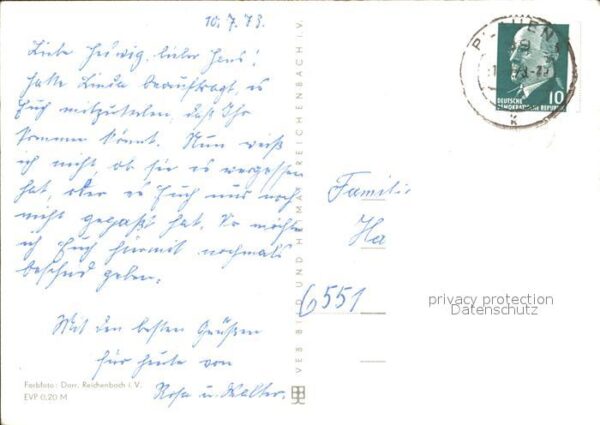 10.7.73.
Liebe Hedwig, lieber Hans!
Hatte Linda beauftragt, es
Euch mitzuteilen, daß Ihr
kommen könnt. Nun weiß
ich nicht, ob sie es vergessen
hat, oder es Euch nur noch
nicht gepaßt hat. So möchte
ich Euch hiermit nochmals
Bescheid geben.
Mit den besten Grüßen
für heute von
Rosa u. Walter.
Farbfoto: Darr, Reichenbach i. V.
EVP 0,20 M
VEB BILD UND HEIMAT REICHENBACH I. V.
PLAUEN
k
10
DEUTSCHE
DEMOKRATISCHE REPUBLIK
Familie
Ha
6551
privacy protection
Datenschutz